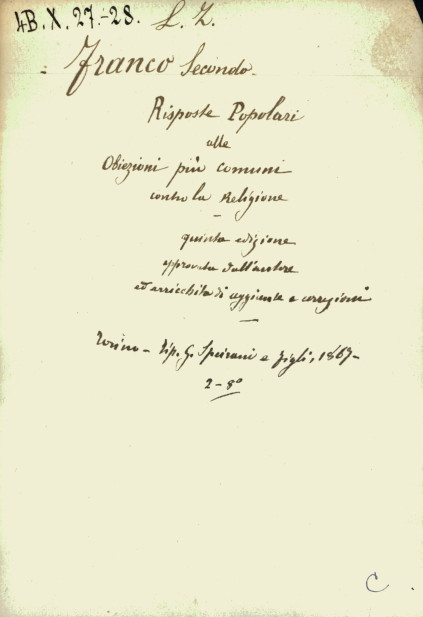 4B.X.27.-28. L. Z.
Franco Secondo.
Risposte Popolari
alle
Obiezioni più comuni
contro la Religione
quinta edizione
approvata dall'autore
ed arricchita di aggiunte e correzioni
Torino - Tip. G. Speirani e figli, 1867-
2-8º
C.